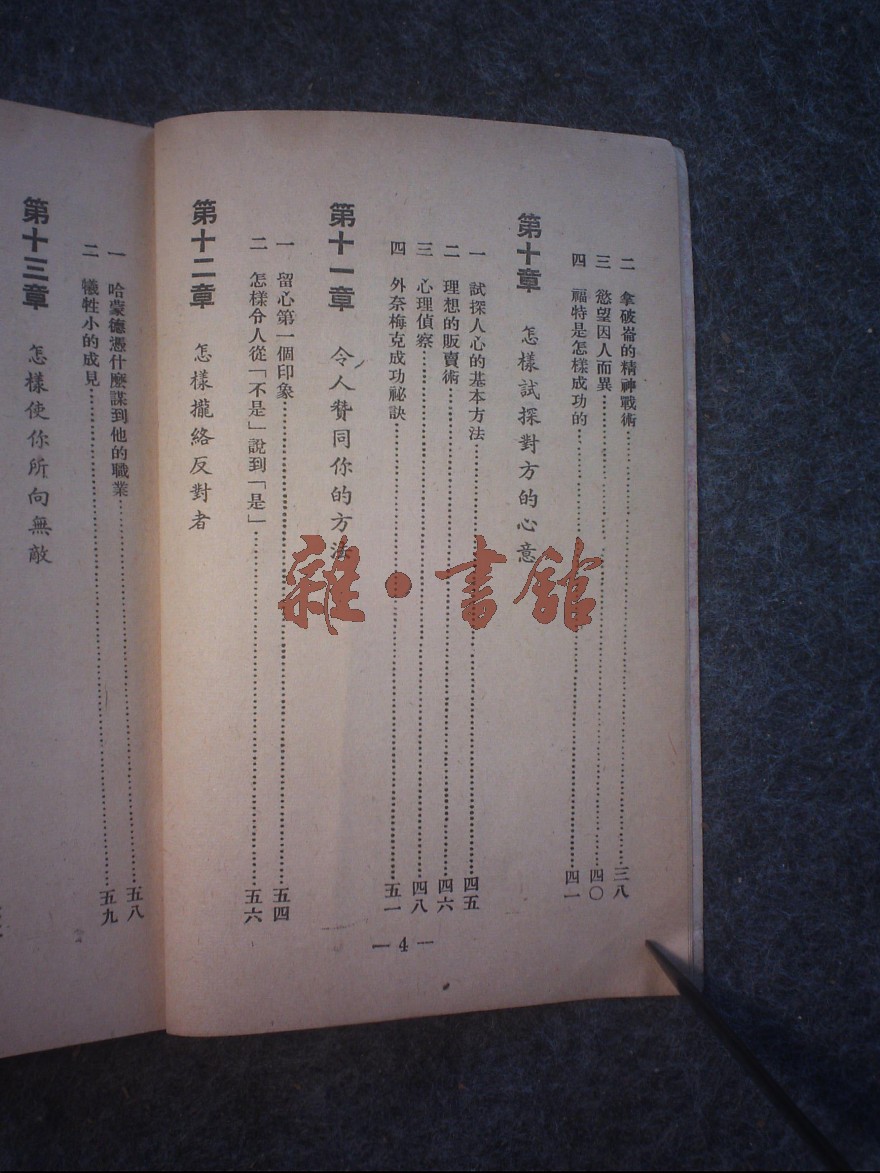 二 拿破崙的精神戰術……三八
三 慾望因人而異……四〇
四 福特是怎樣成功的……四一
第十章 怎樣試探對方的心意
一 試探人心的基本方法……四五
二 理想的販賣術……四六
三 心理偵察……四八
四 外奈梅克成功祕訣……五一
第十一章 令人贊同你的方法
一 留心第一個印象……五四
二 怎樣令人從「不是」說到「是」……五六
第十二章 怎樣攏絡反對者
—4—
一 哈蒙德憑什麼謀到他的職業……五八
二 犧牲小的成見……五九
第十三章 怎樣使你所向無敵
雜·書館